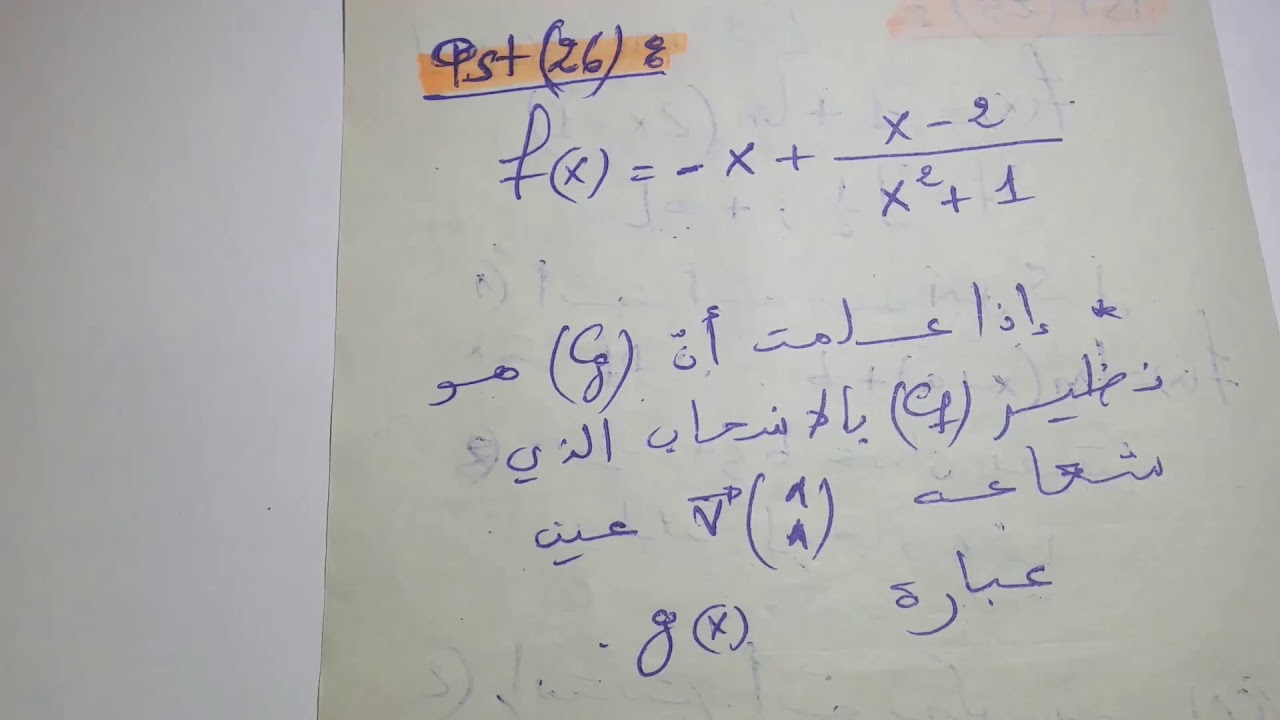 Pst (26) :
f(x) = -x + (x - 2)/(x² + 1)
* إذا علمت أنّ (Cg) هو
نظير (Cf) بالانسحاب الذي
شعاعه v⃗(1 1) عين
عبارة g(x) .